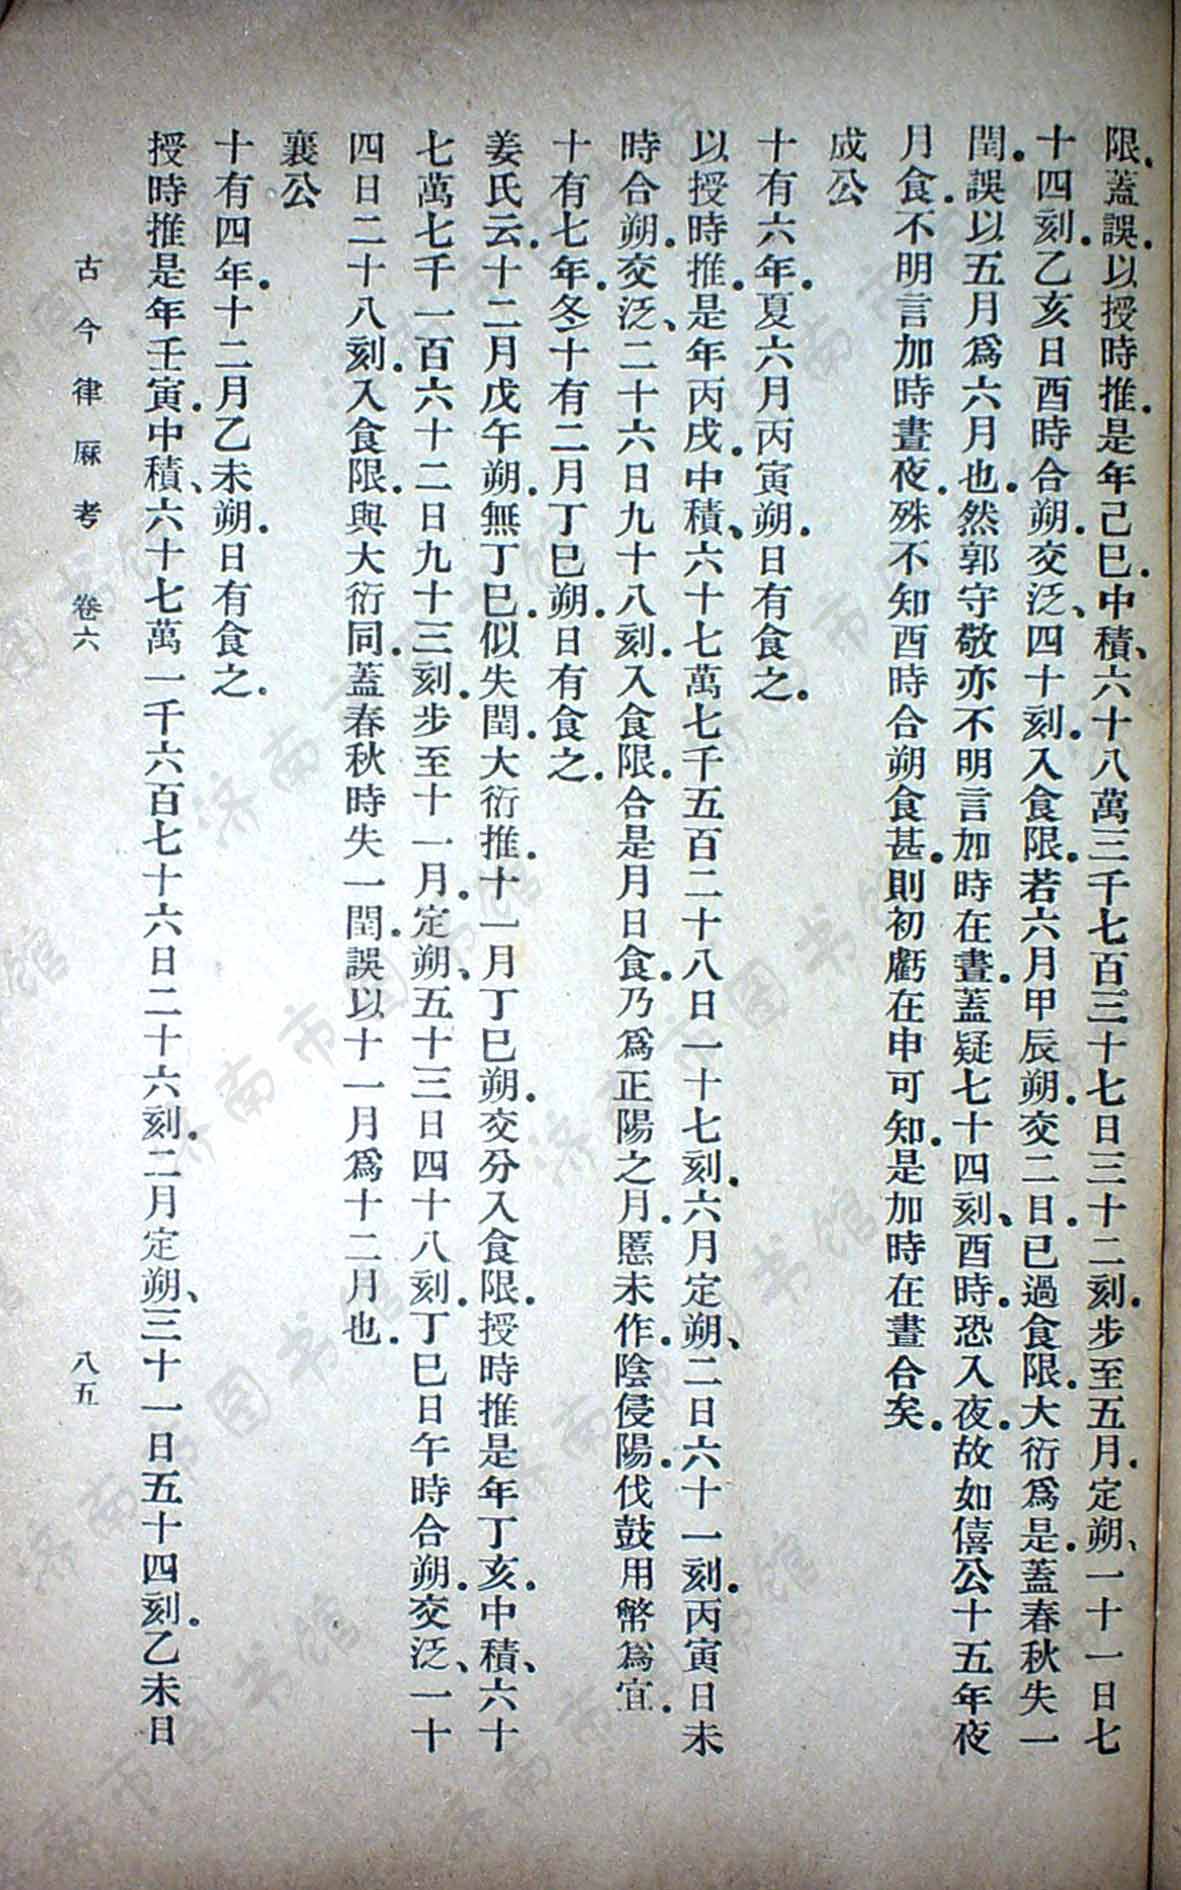 限、蓋誤。以授時推。是年己巳。中積、六十八萬三千七百三十七日三十二刻。步至五月。定朔、一十一日七
十四刻。乙亥日酉時合朔。交泛、四十刻。入食限。若六月甲辰朔。交二日。已過食限。大衍爲是。蓋春秋失一
閏。誤以五月爲六月也。然郭守敬亦不明言加時在晝。蓋疑七十四刻、酉時。恐入夜。故如僖公十五年夜
月食。不明言加時晝夜。殊不知酉時合朔食甚。則初虧在申可知。是加時在晝合矣。
成公
十有六年。夏六月丙寅朔。日有食之。
以授時推。是年丙戌。中積、六十七萬七千五百二十八日一十七刻。六月定朔、二日六十一刻。丙寅日未
時合朔。交泛、二十六日九十八刻。入食限。合是月日食。乃爲正陽之月。慝未作。陰侵陽。伐鼓用幣爲宜。
十有七年。冬十有二月丁巳朔。日有食之。
姜氏云。十二月戊午朔。無丁巳。似失閏。大衍推。十一月丁巳朔。交分入食限。授時推是年丁亥。中積、六十
七萬七千一百六十二日九十三刻。步至十一月。定朔、五十三日四十八刻。丁巳日午時合朔。交泛、一十
四日二十八刻。入食限。與大衍同。蓋春秋時失一閏。誤以十一月爲十二月也。
襄公
十有四年。十二月乙未朔。日有食之。
授時推是年壬寅。中積、六十七萬一千六百七十六日二十六刻。二月定朔、三十一日五十四刻。乙未日
古今律厤考 卷六 八五